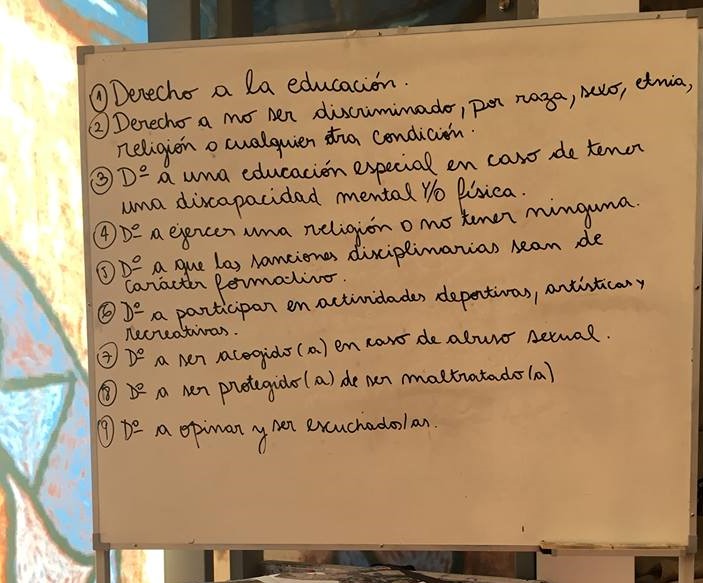 ① Derecho a la educación.
② Derecho a no ser discriminado, por raza, sexo, etnia,
religión o cualquier otra condición.
③ Dº a una educación especial en caso de tener
una discapacidad mental y/o física.
④ Dº a ejercer una religión o no tener ninguna.
⑤ Dº a que las sanciones disciplinarias sean de
carácter formativo.
⑥ Dº a participar en actividades deportivas, artísticas y
recreativas.
⑦ Dº a ser acogido(a) en caso de abuso sexual.
⑧ Dº a ser protegido(a) de ser maltratado(a)
⑨ Dº a opinar y ser escuchados/as.